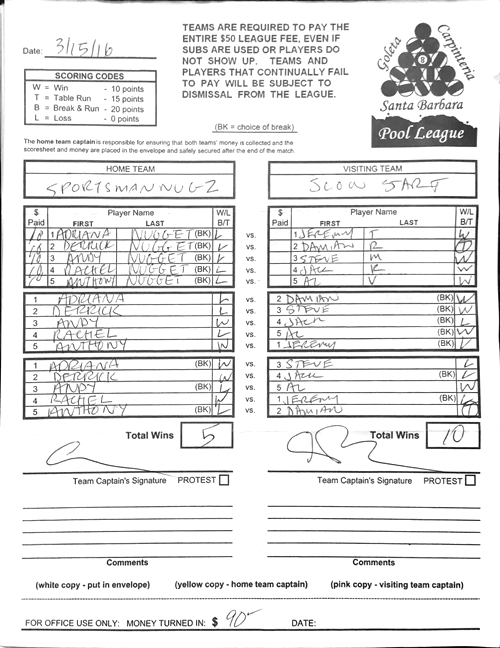 TEAMS ARE REQUIRED TO PAY THE
ENTIRE $50 LEAGUE FEE, EVEN IF
SUBS ARE USED OR PLAYERS DO
NOT SHOW UP. TEAMS AND
PLAYERS THAT CONTINUALLY FAIL
TO PAY WILL BE SUBJECT TO
DISMISSAL FROM THE LEAGUE.
Date: 3/15/16
SCORING CODES
W = Win - 10 points
T = Table Run - 15 points
B = Break & Run - 20 points
L = Loss - 0 points
Goleta Carpinteria
8
Santa Barbara
Pool League
(BK = choice of break)
The home team captain is responsible for ensuring that both teams' money is collected and the
scoresheet and money are placed in the envelope and safely secured after the end of the match.
HOME TEAM VISITING TEAM
SPORTSMANNUGZ SLOW START
$ Player Name W/L $ Player Name W/L
Paid FIRST LAST B/T Paid FIRST LAST B/T
1 ADRIANA NUGGET (BK) L vs. 1 JEREMY T W
2 DERRICK NUGGET (BK) L vs. 2 DAMIAN R T
3 ANDY NUGGET (BK) L vs. 3 STEVE M W
4 RACHEL NUGGET (BK) L vs. 4 JACK K W
5 ANTHONY NUGGET (BK) L vs. 5 AL V W
1 ADRIANA L vs. 2 DAMIAN (BK) W
2 DERRICK L vs. 3 STEVE (BK) W
3 ANDY W vs. 4 JACK (BK) L
4 RACHEL L vs. 5 AL (BK) W
5 ANTHONY W vs. 1 JEREMY (BK) L
1 ADRIANA (BK) W vs. 3 STEVE L
2 DERRICK W vs. 4 JACK (BK) L
3 ANDY (BK) L vs. 5 AL W
4 RACHEL W vs. 1 JEREMY (BK) L
5 ANTHONY (BK) L vs. 2 DAMIAN T
Total Wins 5 Total Wins 10
Team Captain's Signature PROTEST Team Captain's Signature PROTEST
Comments Comments
(white copy - put in envelope) (yellow copy - home team captain) (pink copy - visiting team captain)
FOR OFFICE USE ONLY: MONEY TURNED IN: $ 90- DATE: